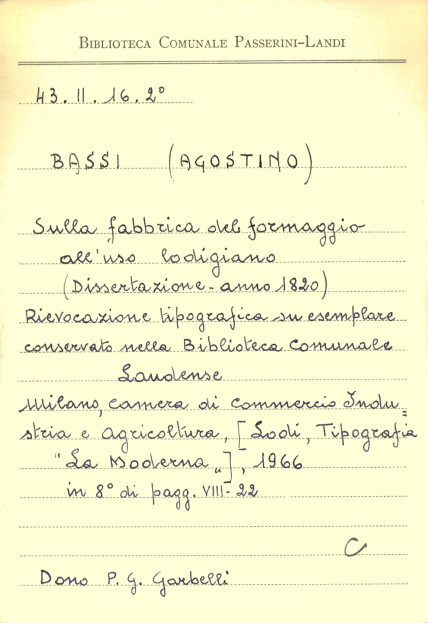 BIBLIOTECA COMUNALE PASSERINI-LANDI
43.II.16.2°
BASSI (AGOSTINO)
Sulla fabbrica del formaggio
all'uso lodigiano
(Dissertazione - anno 1820)
Rievocazione tipografica su esemplare
conservato nella Biblioteca Comunale
Laudense
Milano, Camera di Commercio Indu=
stria e Agricoltura, [Lodi, Tipografia
"La Moderna„], 1966
in 8° di pagg. VIII-22
C
Dono P. G. Garbelli